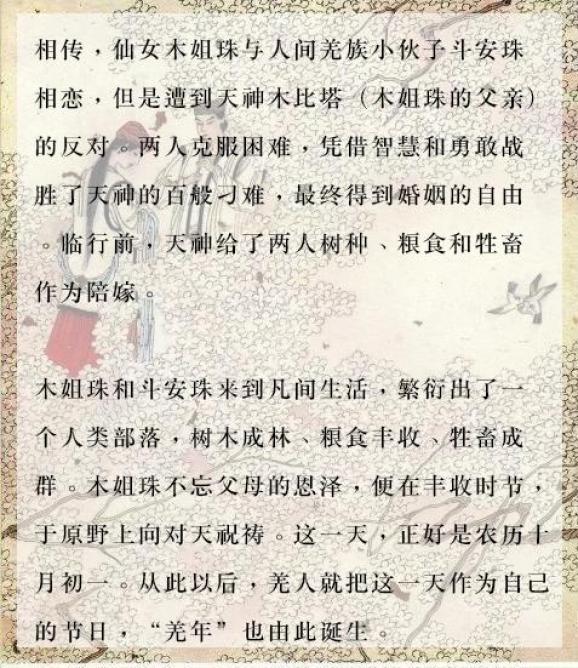 相传，仙女木姐珠与人间羌族小伙子斗安珠
相恋，但是遭到天神木比塔（木姐珠的父亲）
的反对。两人克服困难，凭借智慧和勇敢战
胜了天神的百般刁难，最终得到婚姻的自由
。临行前，天神给了两人树种、粮食和牲畜
作为陪嫁。
木姐珠和斗安珠来到凡间生活，繁衍出了一
个人类部落，树木成林、粮食丰收、牲畜成
群。木姐珠不忘父母的恩泽，便在丰收时节，
于原野上向对天祝祷。这一天，正好是农历十
月初一。从此以后，羌人就把这一天作为自己
的节日，“羌年”也由此诞生。